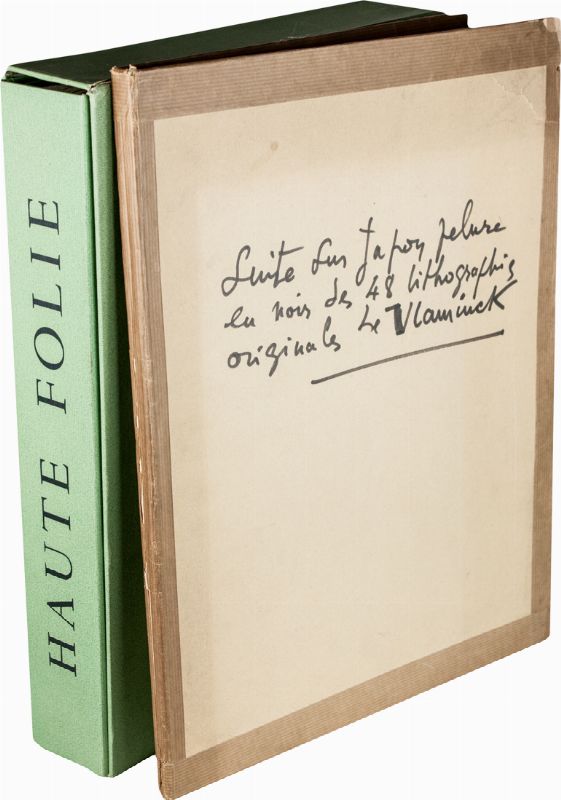 HAUTE FOLIE
Suite sur Japon pelure
en noir des 48 lithographies
originales de Vlaminck